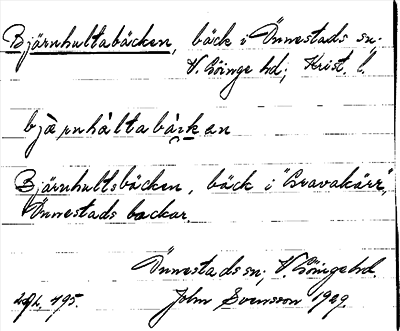 Björnhultabäcken, bäck i Önnestads sn;
V. Göinge hd; Krist. l.
bjä̀ rnhùltabä̀ck en
Björnhultsbäcken, bäck i "Gravakärr",
Önnestads backar.
Önnestads sn; V. Göinge hd.
John Svensson 1929.